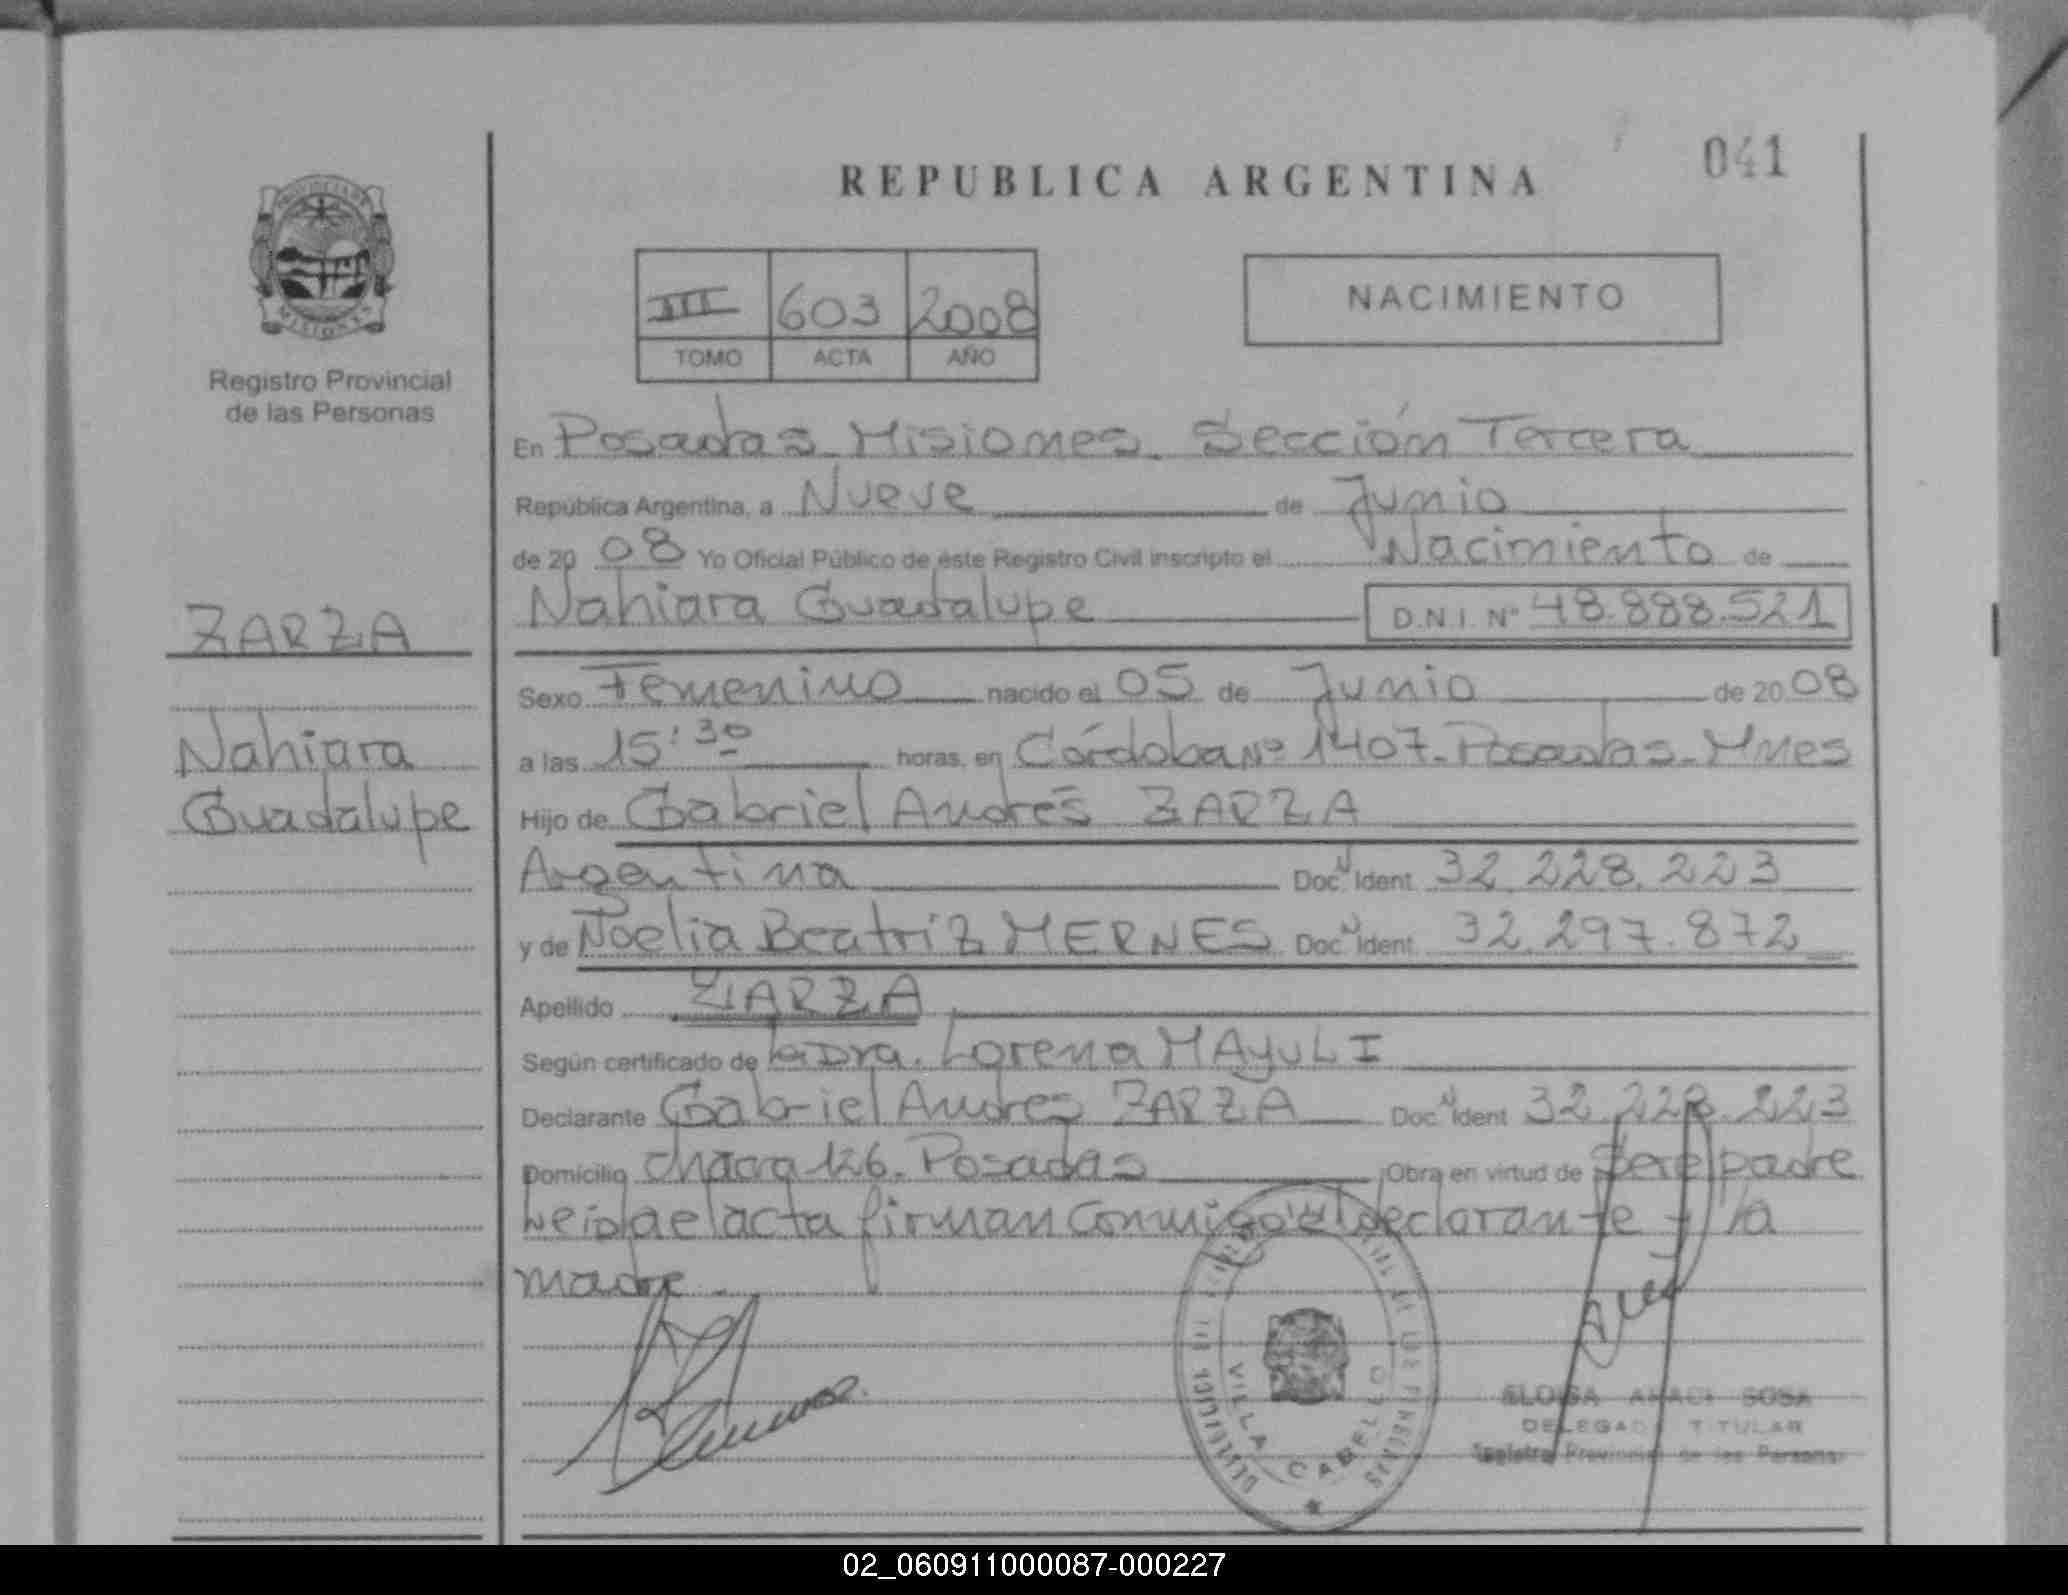 041
REPUBLICA ARGENTINA
PROVINCIA DE
MISIONES
Registro Provincial
de las Personas
III 603 2008
TOMO ACTA AÑO
NACIMIENTO
En Posadas Misiones. Sección Tercera
República Argentina, a Nueve de Junio
de 20 08 Yo Oficial Público de éste Registro Civil inscripto el Nacimiento de
Nahiara Guadalupe D.N.I. Nº 48.888.521
ZARZA
Nahiara
Guadalupe
Sexo Femenino nacido el 05 de Junio de 20 08
a las 15:30 horas, en Córdoba Nº 1407-Posadas-Mnes
Hijo de Gabriel Andrés ZARZA
Argentina Doc. Ident 32.228.223
y de Noelia Beatriz MERNES Doc. Ident 32.297.872
Apellido ZARZA
Según certificado de la Dra. Lorena MAyULI
Declarante Gabriel Andres ZARZA Doc. Ident 32.228.223
Domicilio chacra 126. Posadas Obra en virtud de ser el padre
Leida el acta firman conmigo el declarante y la
madre.
VILLA CABELLO
ELOISA ARACI SOSA
DELEGADA TITULAR
Registro Provincial de las Personas
02_060911000087-000227